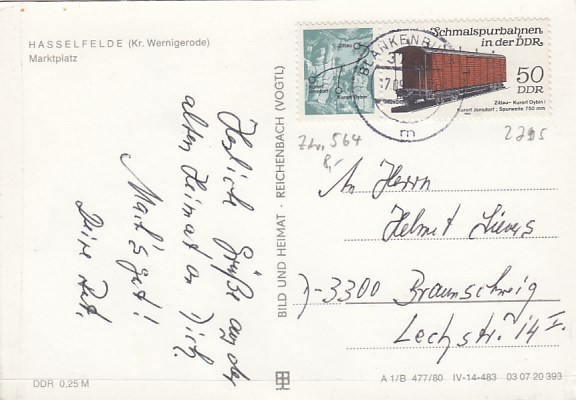 HASSELFELDE (Kr. Wernigerode)
Marktplatz
Herzliche Grüße aus der
alten Heimat an Dich.
Mach's gut!
Deine
BILD UND HEIMAT · REICHENBACH (VOGTL)
Schmalspurbahnen
in der DDR
50
DDR
Zittau
Jonsdorf
Kurort Oybin
Zittau – Kurort Oybin /
Kurort Jonsdorf; Spurweite 750 mm
BLANKENBU
m
564
2795
An Herrn
Helmut Sievers
D-3300 Braunschweig
Lechstr. 14 I
DDR 0,25 M
A 1/B 477/80 IV-14-483 03 07 20 393